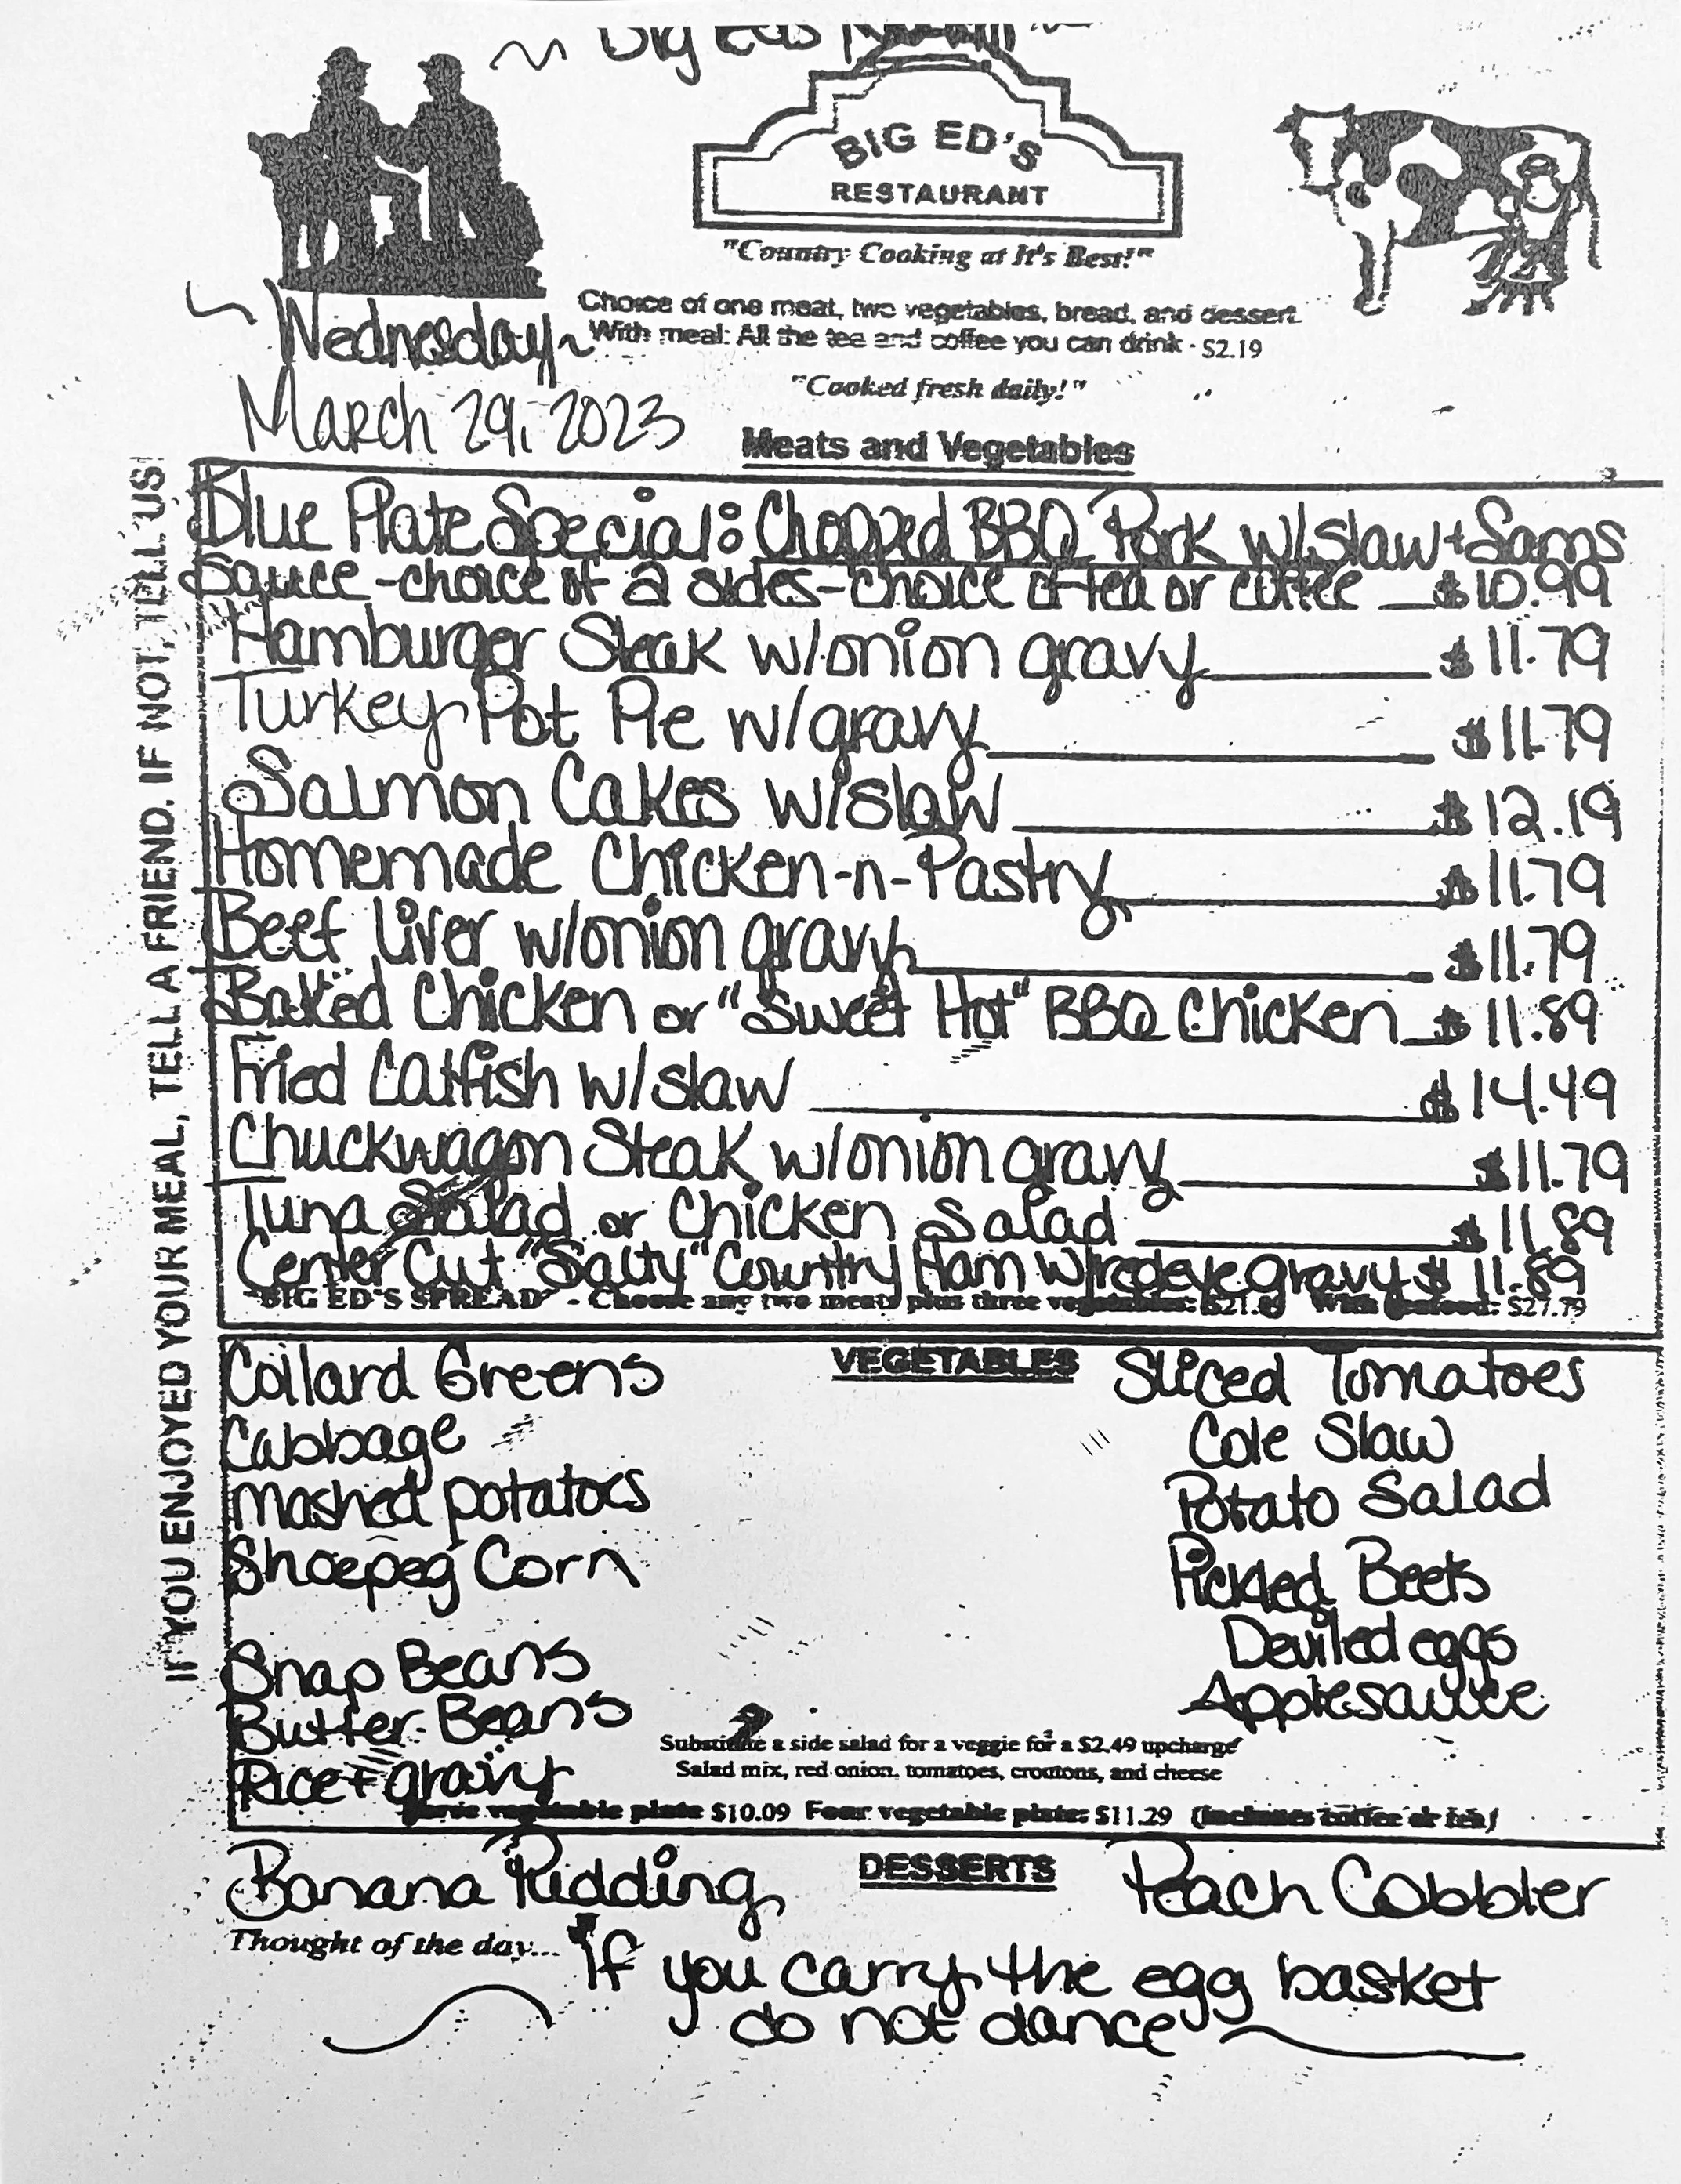 ~ Big Ed's
BIG ED'S
RESTAURANT
"Country Cooking at It's Best!"
Choice of one meat, two vegetables, bread, and dessert.
With meal: All the tea and coffee you can drink - $2.19
~ Wednesday ~
"Cooked fresh daily!"
March 29, 2023
Meats and Vegetables
IF YOU ENJOYED YOUR MEAL, TELL A FRIEND. IF NOT, TELL US!
Blue Plate Special: Chopped BBQ Pork w/slaw + Sams
Sauce - choice of 2 sides - choice of tea or coffee $10.99
Hamburger Steak w/onion gravy $11.79
Turkey Pot Pie w/gravy $11.79
Salmon Cakes w/slaw $12.19
Homemade Chicken-n-Pastry $11.79
Beef Liver w/onion gravy $11.79
Baked Chicken or "Sweet Hot" BBQ Chicken $11.89
Fried Catfish w/slaw $14.49
Chuckwagon Steak w/onion gravy $11.79
Tuna Salad or Chicken Salad $11.89
Center Cut "Salty" Country Ham w/redeye gravy $11.89
"BIG ED'S SPREAD" - Choose any two meats plus three vegetables: With seafood: $27.79
VEGETABLES
Collard Greens
Cabbage
mashed potatoes
Shoepeg Corn
Snap Beans
Butter Beans
Rice + gravy
Sliced Tomatoes
Cole Slaw
Potato Salad
Pickled Beets
Deviled eggs
Applesauce
Substitute a side salad for a veggie for a $2.49 upcharge
Salad mix, red onion, tomatoes, croutons, and cheese
vegetable plate $10.09 Four vegetable plate: $11.29 (includes coffee or tea)
DESSERTS
Banana Pudding
Peach Cobbler
Thought of the day... "If you carry the egg basket
do not dance"